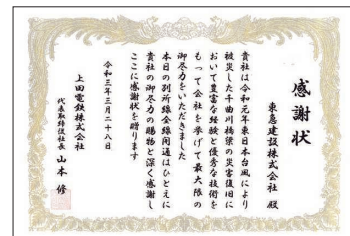 感謝状
東急建設株式会社 殿
貴社は令和元年東日本台風により
被災した千曲川橋梁の災害復旧に
おいて豊富な経験と優秀な技術を
もって会社を挙げて最大限の
御尽力をいただきました
本日の別所線全線開通はひとえに
貴社の御尽力の賜物と深く感謝し
ここに感謝状を贈ります
令和三年三月二十八日
上田電鉄株式会社
代表取締役社長 山本修